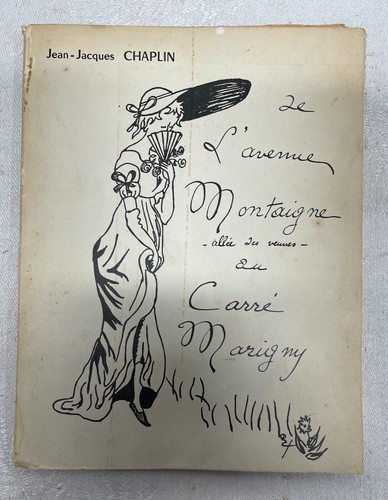 Jean-Jacques CHAPLIN
de
L'avenue
Montaigne
- allée des veuves -
au
Carré
Marigny